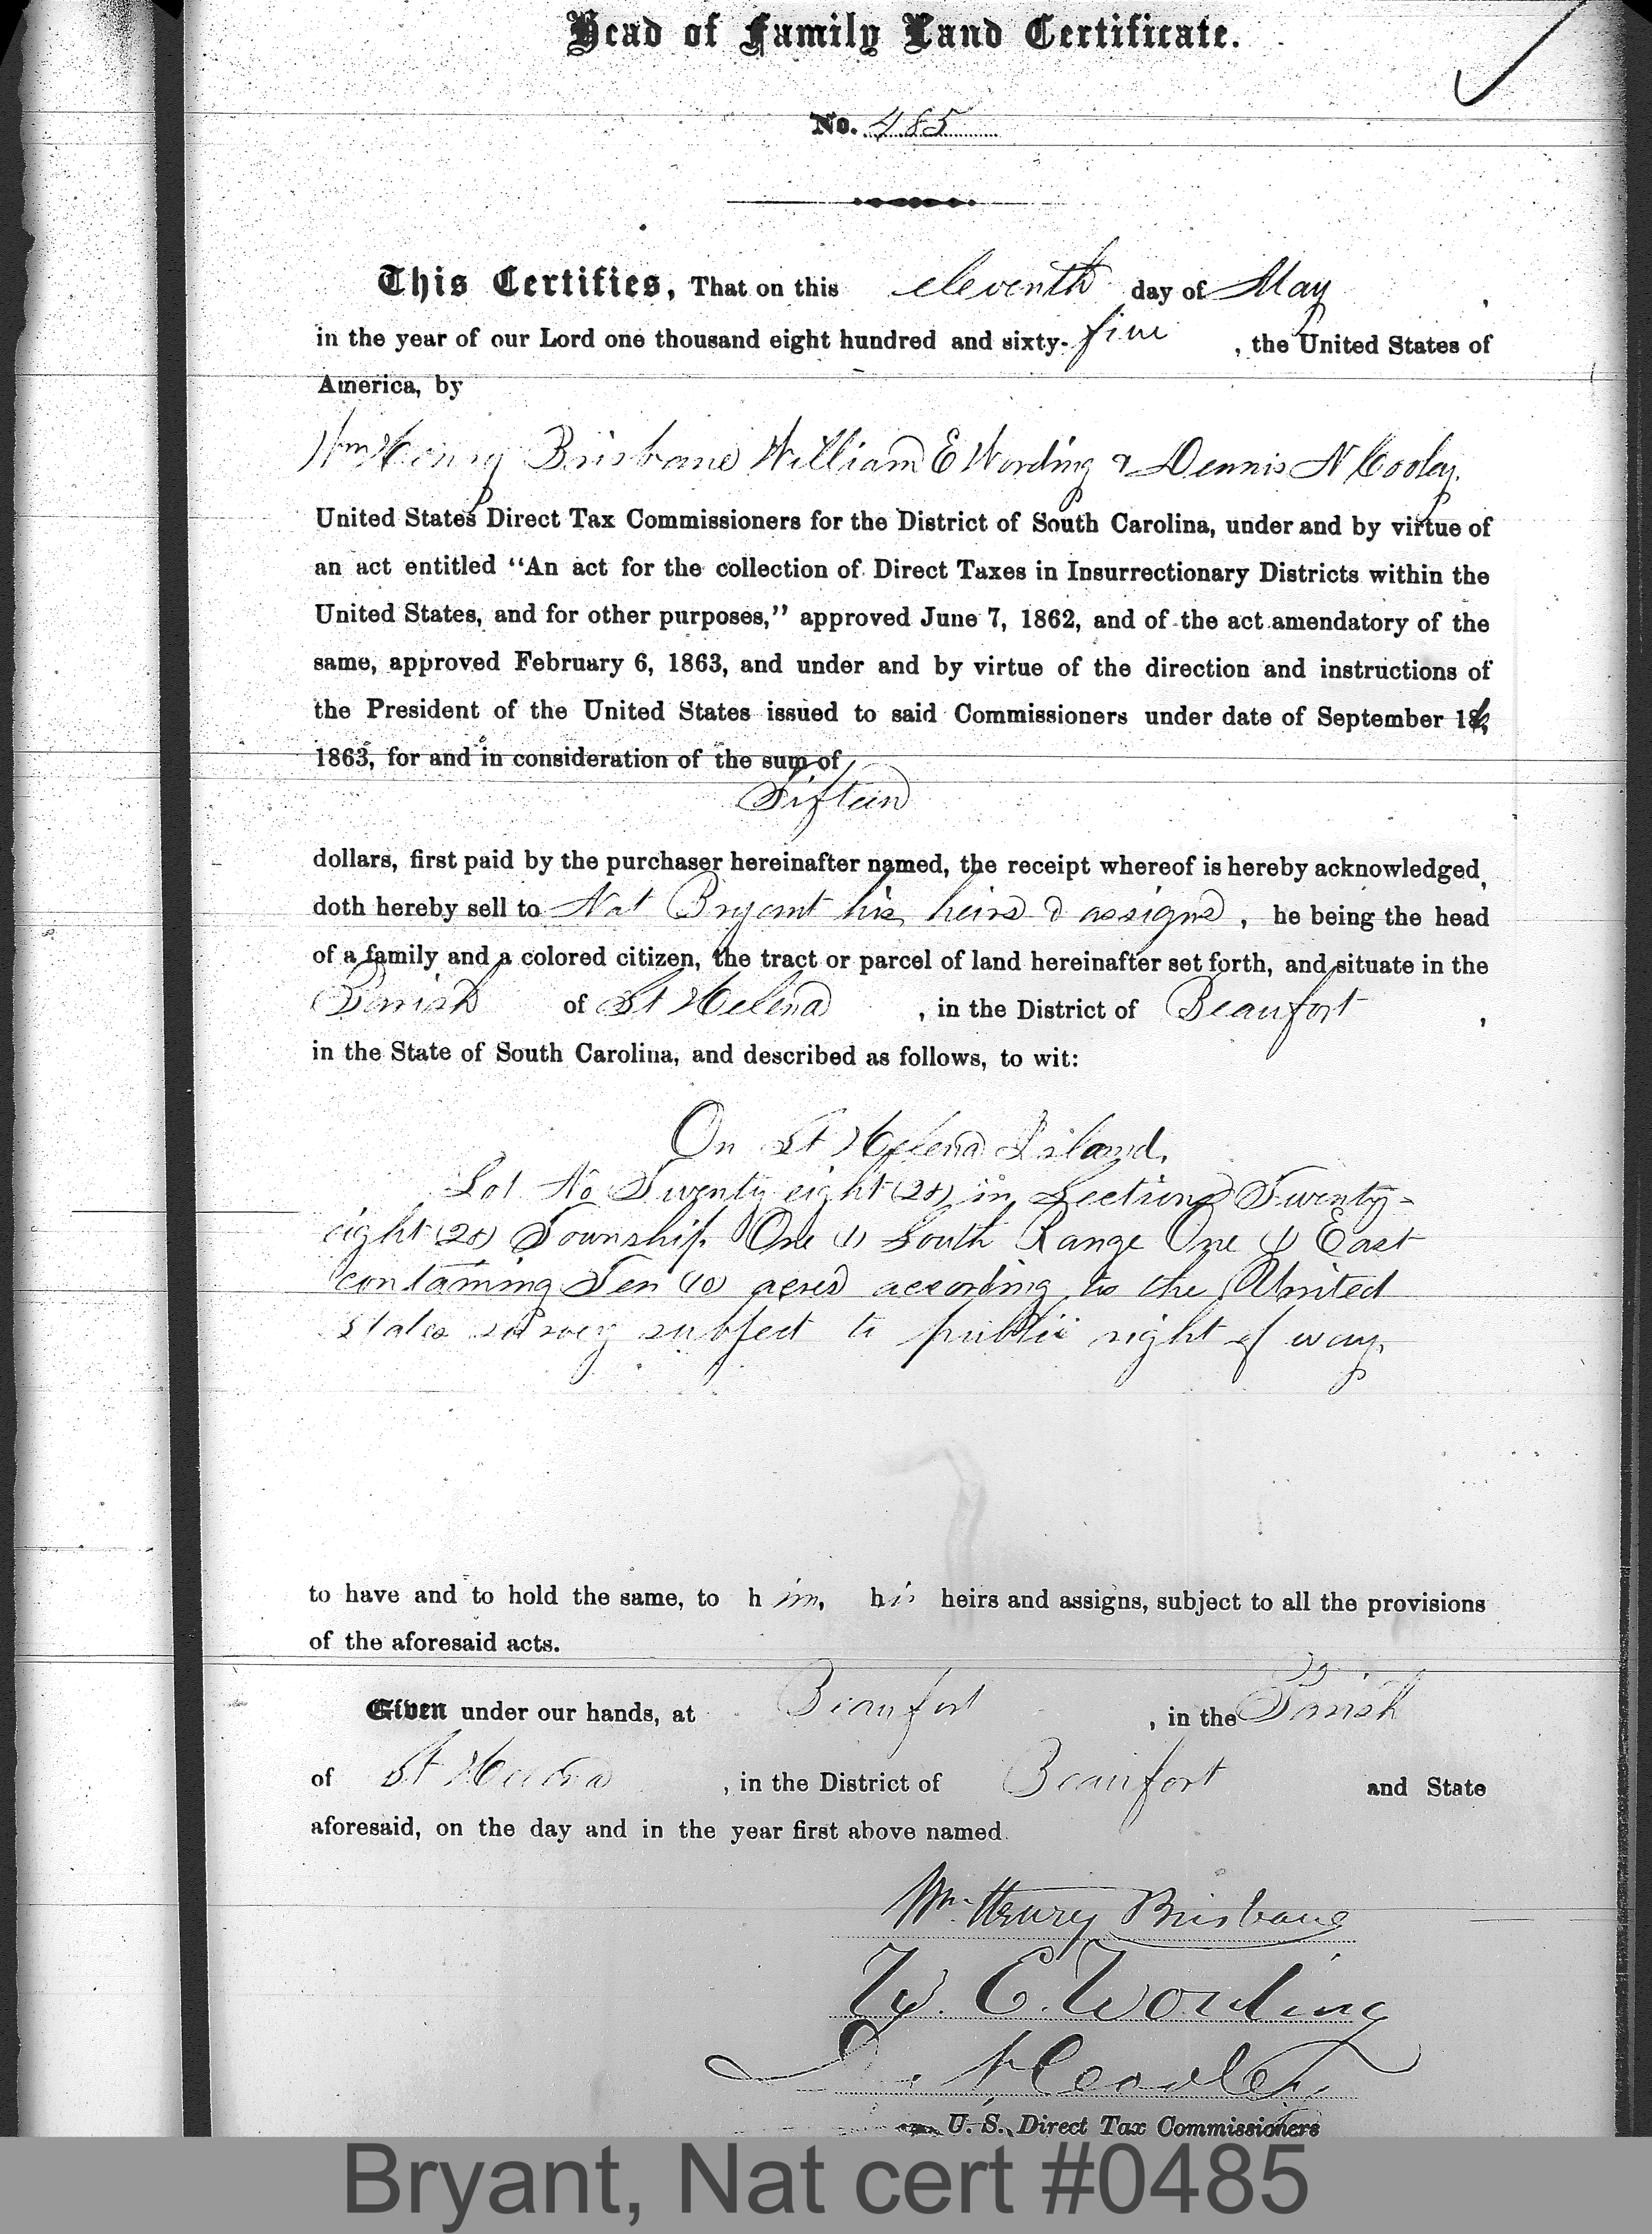 Head of Family Land Certificate.
No. 485
This Certifies, That on this eleventh day of May,
in the year of our Lord one thousand eight hundred and sixty-five, the United States of
America, by
Wm Henry Brisbane William E Wording & Dennis N Cooley.
United States Direct Tax Commissioners for the District of South Carolina, under and by virtue of
an act entitled "An act for the collection of Direct Taxes in Insurrectionary Districts within the
United States, and for other purposes," approved June 7, 1862, and of the act amendatory of the
same, approved February 6, 1863, and under and by virtue of the direction and instructions of
the President of the United States issued to said Commissioners under date of September 16,
1863, for and in consideration of the sum of
Fifteen
dollars, first paid by the purchaser hereinafter named, the receipt whereof is hereby acknowledged,
doth hereby sell to Nat Bryant his heirs & assigns, he being the head
of a family and a colored citizen, the tract or parcel of land hereinafter set forth, and situate in the
Parish of St Helena, in the District of Beaufort,
in the State of South Carolina, and described as follows, to wit:
On St Helena Island.
Lot No Twenty eight (28) in Section Twenty-
eight (28) Township One (1) South Range One (1) East
containing Ten (10) acres according to the United
States survey subject to public right of way.
to have and to hold the same, to him, his heirs and assigns, subject to all the provisions
of the aforesaid acts.
Given under our hands, at Beaufort, in the Parish
of St Helena, in the District of Beaufort and State
aforesaid, on the day and in the year first above named.
Wm. Henry Brisbane
W. E. Wording
D. N. Cooley
U. S. Direct Tax Commissioners
Bryant, Nat cert #0485